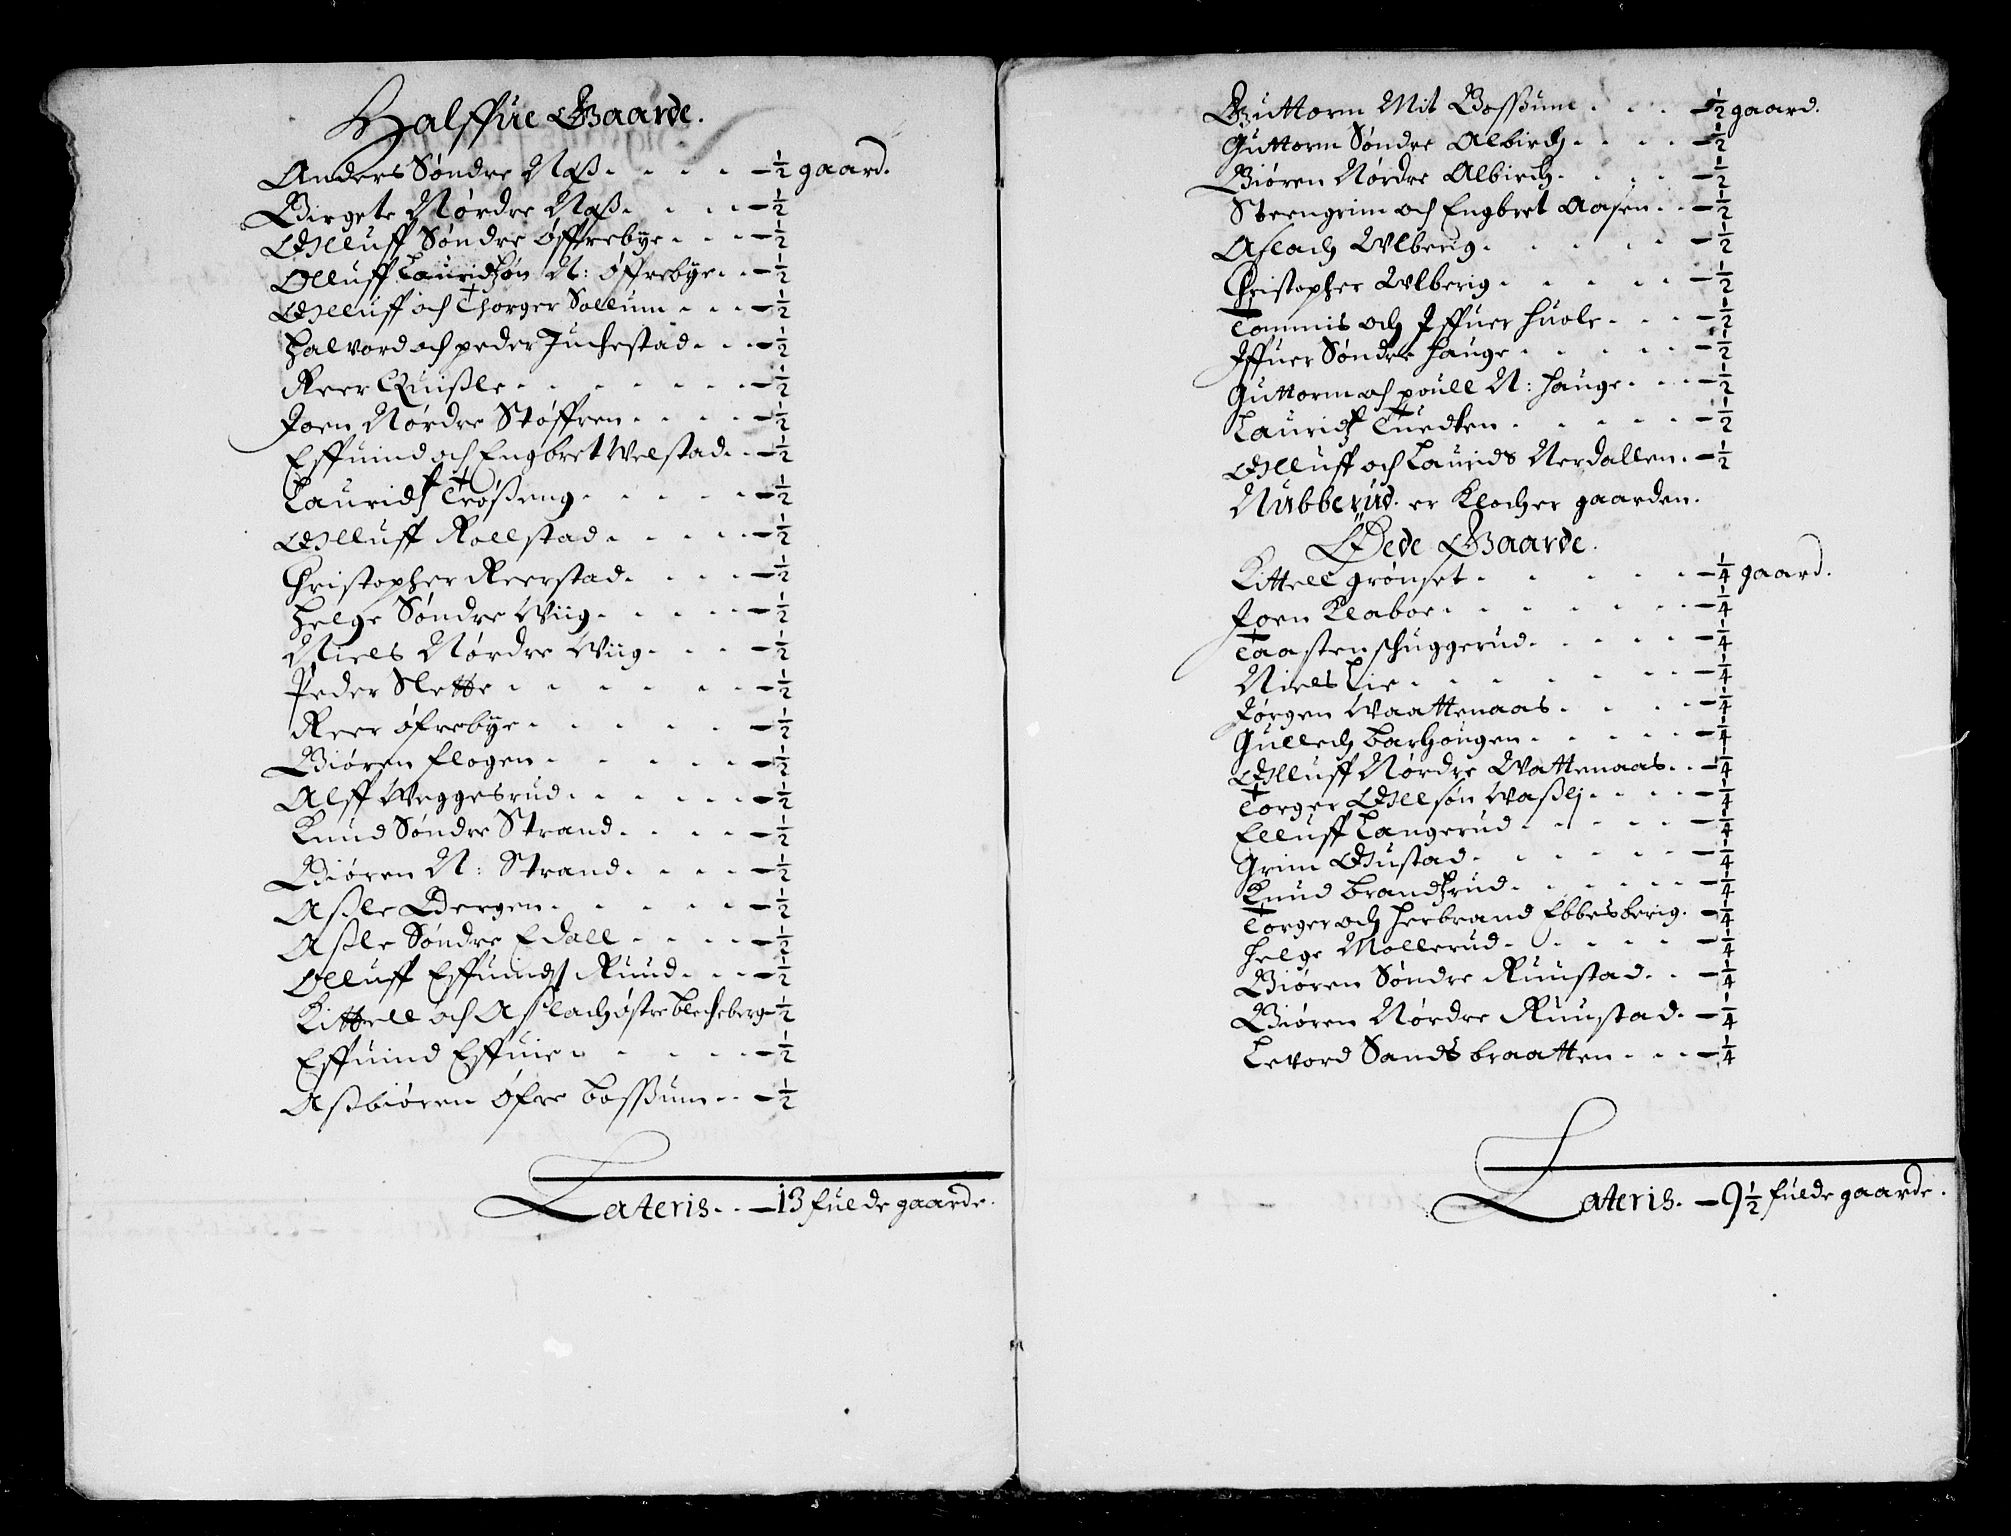 Halffue Gaarde.
Anders Søndre Næß. . . . . - ½ gaard.
Birgete Nørdre Næß. . . . - ½
Olluff Søndre Øffrebye. . . - ½
Olluff Lauridtzøn N: Øffrebye. . - ½
Olluff och Thorger Sollum . . . - ½
Halvord och peder Juchestad. . . - ½
Reer Quißle. . . . . . . - ½
Joen Nørdre Støffren . . . . - ½
Effuind och Engbret Velstad. . - ½
Lauridtz Trøßeng. . . . . - ½
Olluff Rollstad. . . . . - ½
Christopher Reerstad. . . . - ½
Helge Søndre Wiig. . . . . - ½
Niels Nørdre Wiig. . . . - ½
Peder Slette . . . . . . - ½
Reer øfrebye. . . . . . - ½
Biøren Flogen. . . . . . - ½
Alff Weggesrud. . . . . . - ½
Knud Søndre Strand. . . . - ½
Biøren N: Strand. . . . - ½
Aßle Bergen. . . . . . - ½
Aßle Søndre Edall . . . . - ½
Olluff Effuindz Ruud. . . - ½
Kittell och Aslach østre blecheberg - ½
Effuind Effuie. . . . . - ½
Aßbiøren Øfre boßum. . - ½
Lateris. . - 13 fulde gaarde.
Guttorm Mit Boßum . . . - ½ gaard.
Guttorm Søndre Albirch. . . . - ½
Biøren Nørdre Albirch. . . . - ½
Steengrim och Engbret Aasen. . - ½
Aslach Ulberig. . . . . - ½
Christopher Ulberig. . . . . - ½
Tommis och Iffuer Huole. . . - ½
Iffuer Søndre Hauge. . . . . - ½
Guttorm och poull N: Hauge. . . - ½
Lauridtz Tuedten . . . . . - ½
Olluff och Laurids Nerdallen. - ½
Nubberud. er Klocher gaarden.
Øede Gaarde.
Kittell grønset . . . . . - ¼ gaard.
Joen Klaboe. . . . . . . - ¼
Taasten schuggerud. . . . . - ¼
Niels Lie . . . . . . - ¼
Jørgen Waattenaas. . . . - ¼
Gullech barhougen . . . . . - ¼
Olluff Nørdre Wattenaas. . - ¼
Torger Ollsøn Waßlj. . . . - ¼
Elluff Langerud . . . . . - ¼
Grim Gustad. . . . . . - ¼
Knud brandtzrud. . . . . . - ¼
Torger och Herbrand Ebbesberig. - ¼
Helge Mollerud. . . . . - ¼
Biøren Søndre Ruustad. . - ¼
Biøren Nørdre Ruustad. - ¼
Levord Sandsbraatten . . . - ¼
Lateris. - 9½ fulde gaarde.